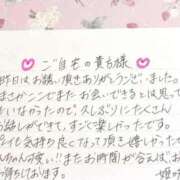 ご自宅の貴方様
昨日はお誘い頂きありがとうございました。
まさかここでまたお会いできるとは思って
いなかったので久しぶりにたくさん
お話しができて、すごく楽しかったです。
イも気持ち良くなって頂き嬉しかった
ちゃんが可愛い!!またお時間が合えば、お
待ちしております。